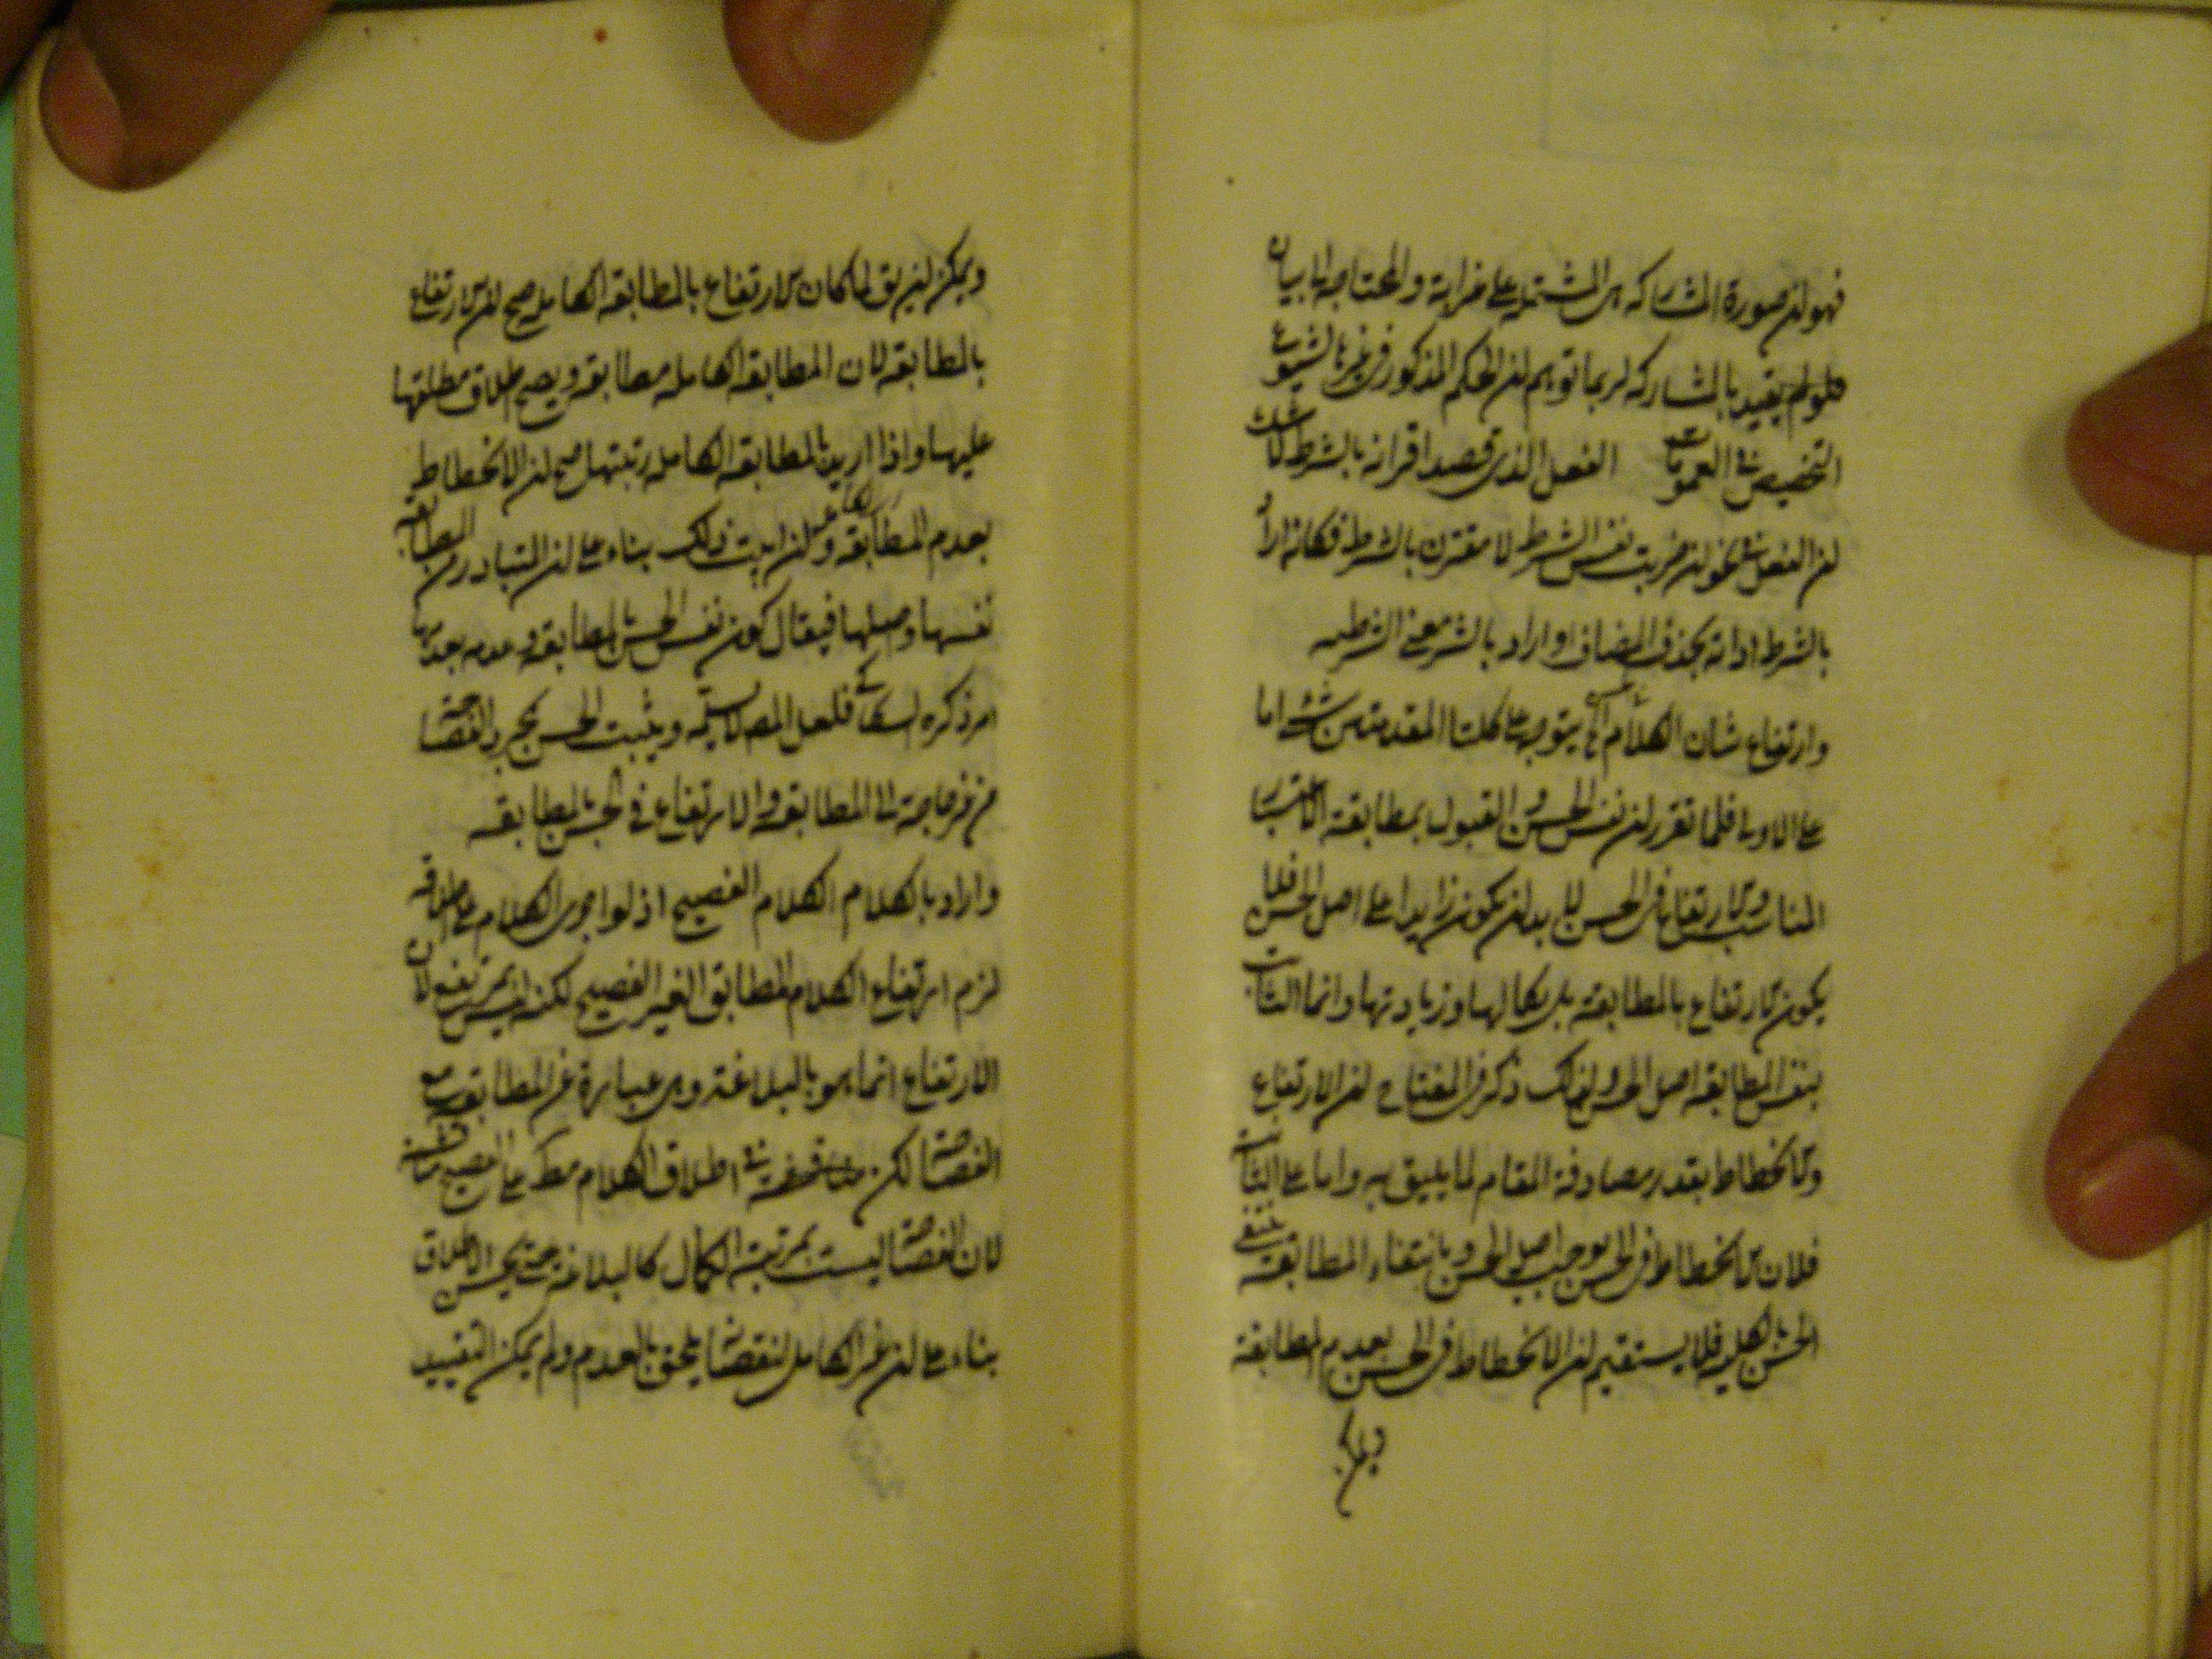 فهو ان صورة المشاركه هى المشتمله على غرابة والمحتاجة الى بيان
فلو لم يقيد بالمشاركه لربما توهم ان الحكم المذكور فى غيرها لشيوع
التخصيص فى العمومات الفعل الذى قصد اقرانه بالشرط لا شك
ان الفعل فى نحو ان ضربت نفس الشرط لا مقترن بالشرط فكانه اراد
بالشرط اداته بحذف المضاف او اراد بالشرط معنى الشرطيه
وارتفاع شان الكلام آه يتوجه على كلتا المقدمتين شئ اما
على الاولى فلما تقرر ان نفس الحسن والقبول بمطابقة الاعتبار
المناسب والارتفاع فى الحسن لا بد ان يكون زايدا على اصل الحسن فلا
يكون الارتفاع بالمطابقة بل بكمالها وزيادتها وانما الثابت
بنفس المطابقة اصل الحسن ولذلك ذكر فى المفتاح ان الارتفاع
والانحطاط بقدر مصادفة المقام لما يليق به واما على الثانيه
فلان الانحطاط فى الحسن يوجب اصل الحسن وبانتفاء المطابقة ينتفى
الحسن بالكليه فلا يستقيم ان الانحطاط فى الحسن بعدم المطابقة
ويمكن
ويمكن ان يق لما كان الارتفاع بالمطابقة الكاملة صح ان الارتفاع
بالمطابقة لان المطابقة الكاملة مطابقة ويصح اطلاق مطلقها
عليها واذا اريد بالمطابقة الكاملة رتبتها صح ان الانحطاط
بعدم المطابقة الكاملة وان ابيت ذلك بناء على ان المتبادر من المطابقة
نفسها واصلها فيقال كون نفس الحسن بالمطابقة وعدمه بعدمها
امر ذكره السكاكى فلعل المص لا يسلمه ويثبت الحسن بمجرد الفصاحة
من غير حاجة الى المطابقة والارتفاع فى الحسن بالمطابقه
واراد بالكلام الكلام الفصيح اذ لو اجرى الكلام على اطلاقه
لزم ارتفاع الكلام المطابق الغير الفصيح لكنه ليس بمرتفع لان
الارتفاع انما هو بالبلاغة وهى عبارة عن المطابقة مع
الفصاحة لكن مناقضة فى اطلاق الكلام مط على الفصيح
لان الفصاحة ليست بمرتبة الكمال كالبلاغة حتى يحسن الاطلاق
بناء على ان غير الكامل لنقصانه يلحق بالعدم ولم يمكن التقييد